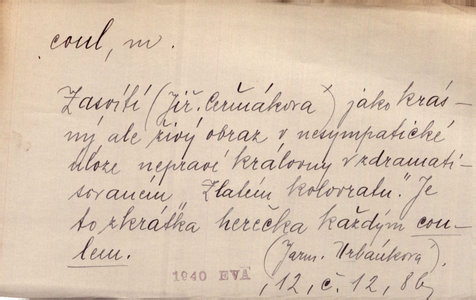 coul, m.
Zasvítí (Jiř. Čermákova) jako krás-
ný ale živý obraz v nesympatické
úloze nepravé královny v zdramati-
sovaném „Zlatém kolovratu." Je
to zkrátka herečka každým cou-
lem.
(Jarm. Urbánková)
1940 EVA
12, č. 12, 8b